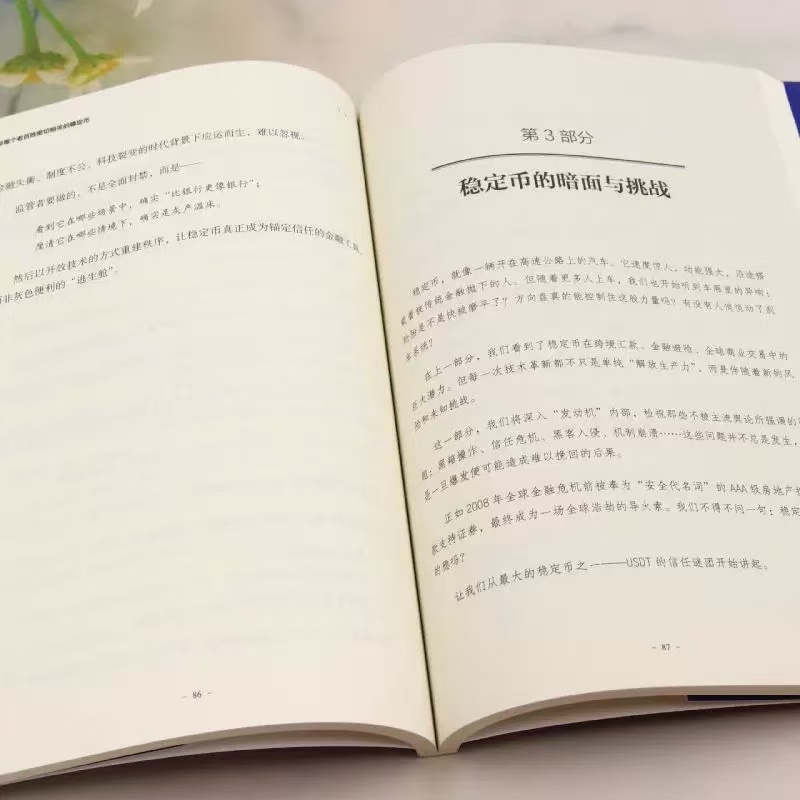 每个老百姓密切相关的稳定币
金融失衡、制度不公、科技裂变的时代背景下应运而生，难以忽视。
监管者要做的，不是全面封禁，而是——
看到它在哪些场景中，确实“比银行更像银行”；
厘清它在哪些情境下，确实是灰产温床。
然后以开放技术的方式重建秩序，让稳定币真正成为锚定信任的金融工具，
而非灰色便利的“逃生舱”。
- 86 -
第 3 部分
稳定币的暗面与挑战
稳定币，就像一辆开在高速公路上的汽车。它速度惊人，功能强大，沿途搭
载着被传统金融抛下的人。但随着更多人上车，我们也开始听到车厢里的异响：
轮胎是不是快被磨平了？方向盘真的能控制住这股力量吗？有没有人悄悄动了刹
车系统？
在上一部分，我们看到了稳定币在跨境汇款、金融避险、全球商业交易中的
巨大潜力。但每一次技术革新都不只是单纯“解放生产力”，而是伴随着新的风
险和未知挑战。
这一部分，我们将深入“发动机”内部，检视那些不被主流舆论所强调的
题：黑箱操作、信任危机、黑客入侵、机制崩溃……这些问题并不总是发生，
是一旦爆发便可能造成难以挽回的后果。
正如 2008 年全球金融危机前被奉为“安全代名词”的 AAA 级房地产
款支持证券，最终成为一场全球浩劫的导火索。我们不得不问一句：稳定
的稳吗？
让我们从最大的稳定币之一——USDT 的信任谜团开始讲起。
- 87 -